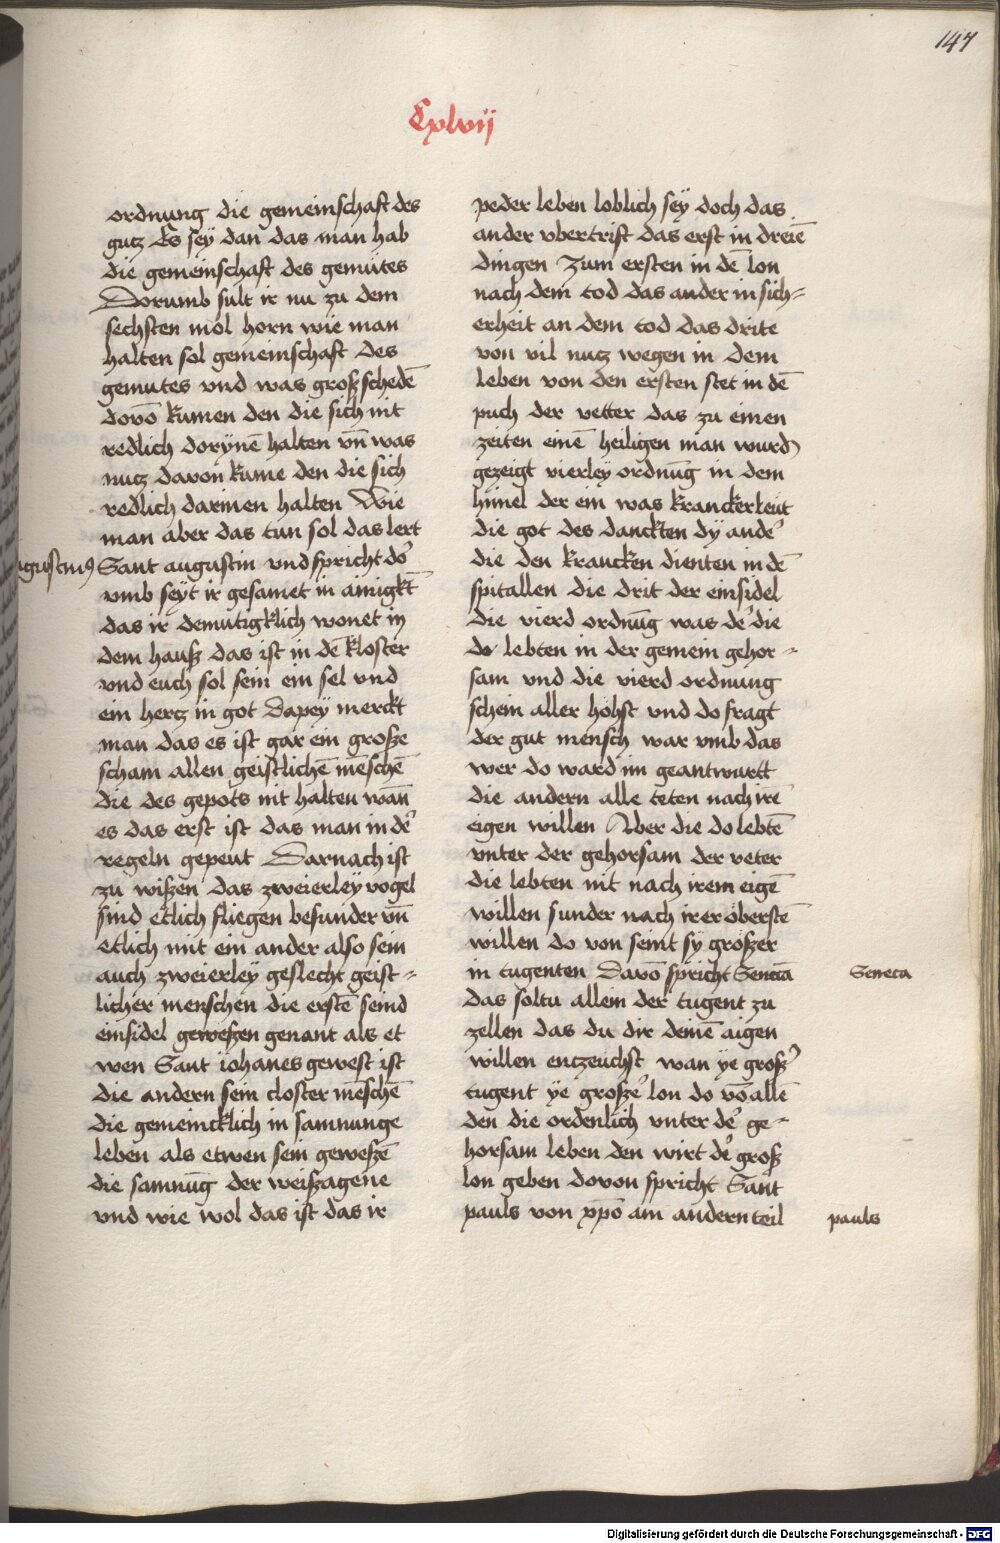 147
Cxlvij
ordnung die gemeinschaft des
gutz Es seÿ dan das man hab
die gemeinschaft des gemütes
Dorumb sült ir nu zu dem
sechsten mol horn wie man
halten sol gemeinschaft des
gemutes vnd was groß schedē
dovō kumen den die sich nit
redlich dorÿnē halten vn̄ was
nutz davon kume den die sich
redlich darinen halten Wie
man aber das tun sol das lert
Sant augustin vnd spricht do᷑
vmb seÿt ir gesamet in ainigkt̄
das ir demutigklich wonet in
dem hauß das ist in dē kloster
vnd euch sol sein ein sel vnd
ein hertz in got Dapeÿ merckt
man das es ist gar ein große
scham allen geistlichē mēschē
die des gepots nit halten wan̄
es das erst ist das man in de᷑
regeln gepeut Darnach ist
zu wißen das zweierleÿ vogel
sind etlich fliegen besunder vn̄
etlich mit ein ander also sein
auch zweierleÿ geslecht geist-
licher menschen die erstē seind
einsidel geweßen genant als et
wen Sant iohanes gewest ist
die andern sein closter mēschē
die gemeincklich in samnunge
leben als etwen sein geweßē
die samnūg der weißagene
vnd wie wol das ist das ir
gustin⁹
peder leben loblich seÿ doch das
ander vbertrift das erst in dreiē
dingen Zum ersten in dē lon
nach dem tod das ander in sich-
erheit an dem tod das drite
von vil nutz wegen in dem
leben von den ersten stet in dē
puch der vetter das zu einen
zeiten einē heiligen man wurd
gezeigt vierleÿ ordnūg in dem
himel der ein was krancker leüt
die got des danckten dÿ ande᷑
die den krancken dienten in dē
spitallen die drit der einsidel
die vierd ordnūg was de᷑ die
do lebten in der gemein gehor-
sam vnd die vierd ordnung
schein aller hohst vnd do fragt
der gut mensch war vmb das
wer do ward im geantwurtt
die andern alle teten nach irē
eigen willen Aber die do lebtē
vnter der gehorsam der veter
die lebten nit nach irem eigē
willen sunder nach irer öberstē
willen do von seint sÿ großer
in tugenten Davō spricht Senecā
das soltu allein der tugent zu
zellen das du dir deinē aigen
willen entzeuchst wan ÿe groß᷑
tugent ÿe große᷑ lon do vō allē
den die ordenlich vnter de᷑ ge-
horsam leben den wirt de᷑ groß
lon geben dovon spricht Sant
pauls von xp̄o am andern teil
Seneca
pauls
Digitalisierung gefördert durch die Deutsche Forschungsgemeinschaft - DFG